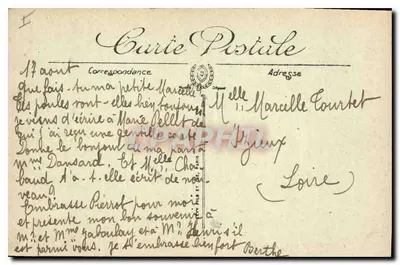 I
Carte Postale
Correspondance
Adresse
17 août
Que fais-tu ma petite Marcelle
Les poules vont-elles bien toujours
Je viens d'écrire à Marie Pellet de
qui j'ai reçu une gentille carte
Donne le bonjour de ma part à
Mme Dansard. Et Melle Cha
baud t'a-t-elle écrit de nou
veau?
Embrasse Pierrot pour moi
et présente mon bon souvenir
Mr et Mme Jaboulay et à Mr Henri s'il
est parmi vous. Je t'embrasse bien fort
Berthe
Melle Marcelle Tourtet
(Loire)